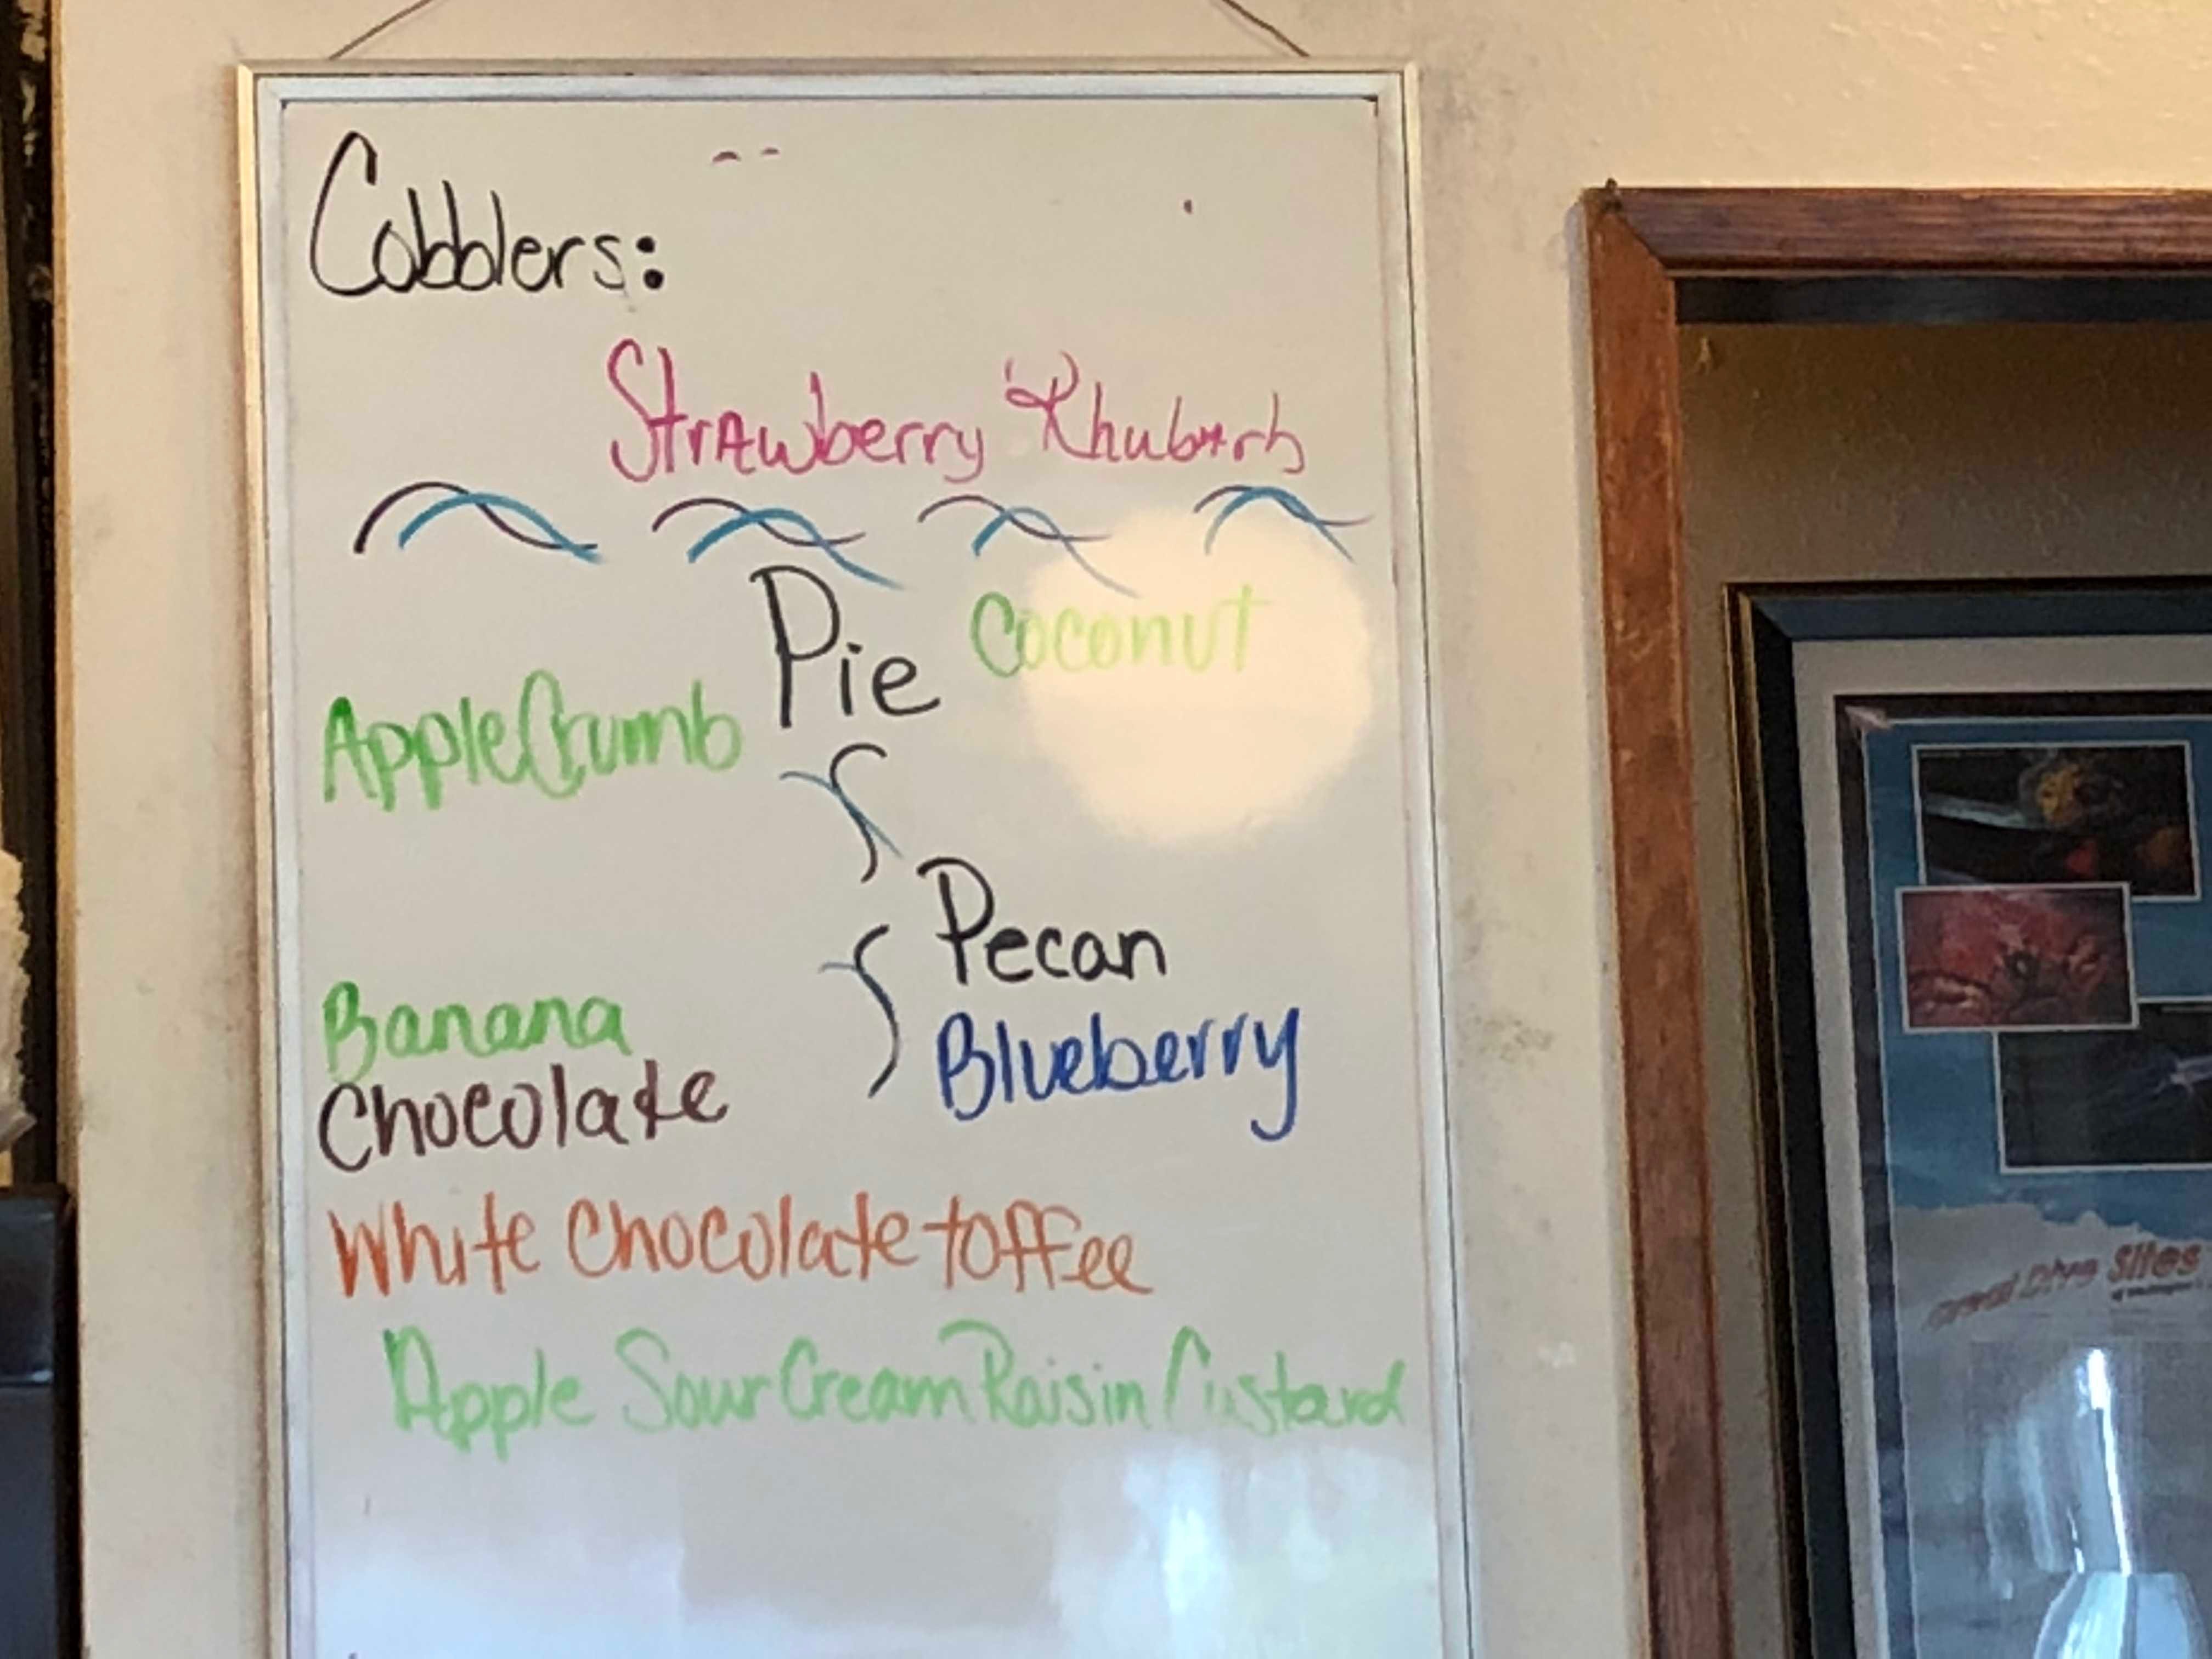 Cobblers:
Strawberry Rhubarb
Pie
Coconut
Apple Crumb
Pecan
Banana
Blueberry
Chocolate
White Chocolate toffee
Apple Sour Cream Raisin Custard
Great Dive Sites